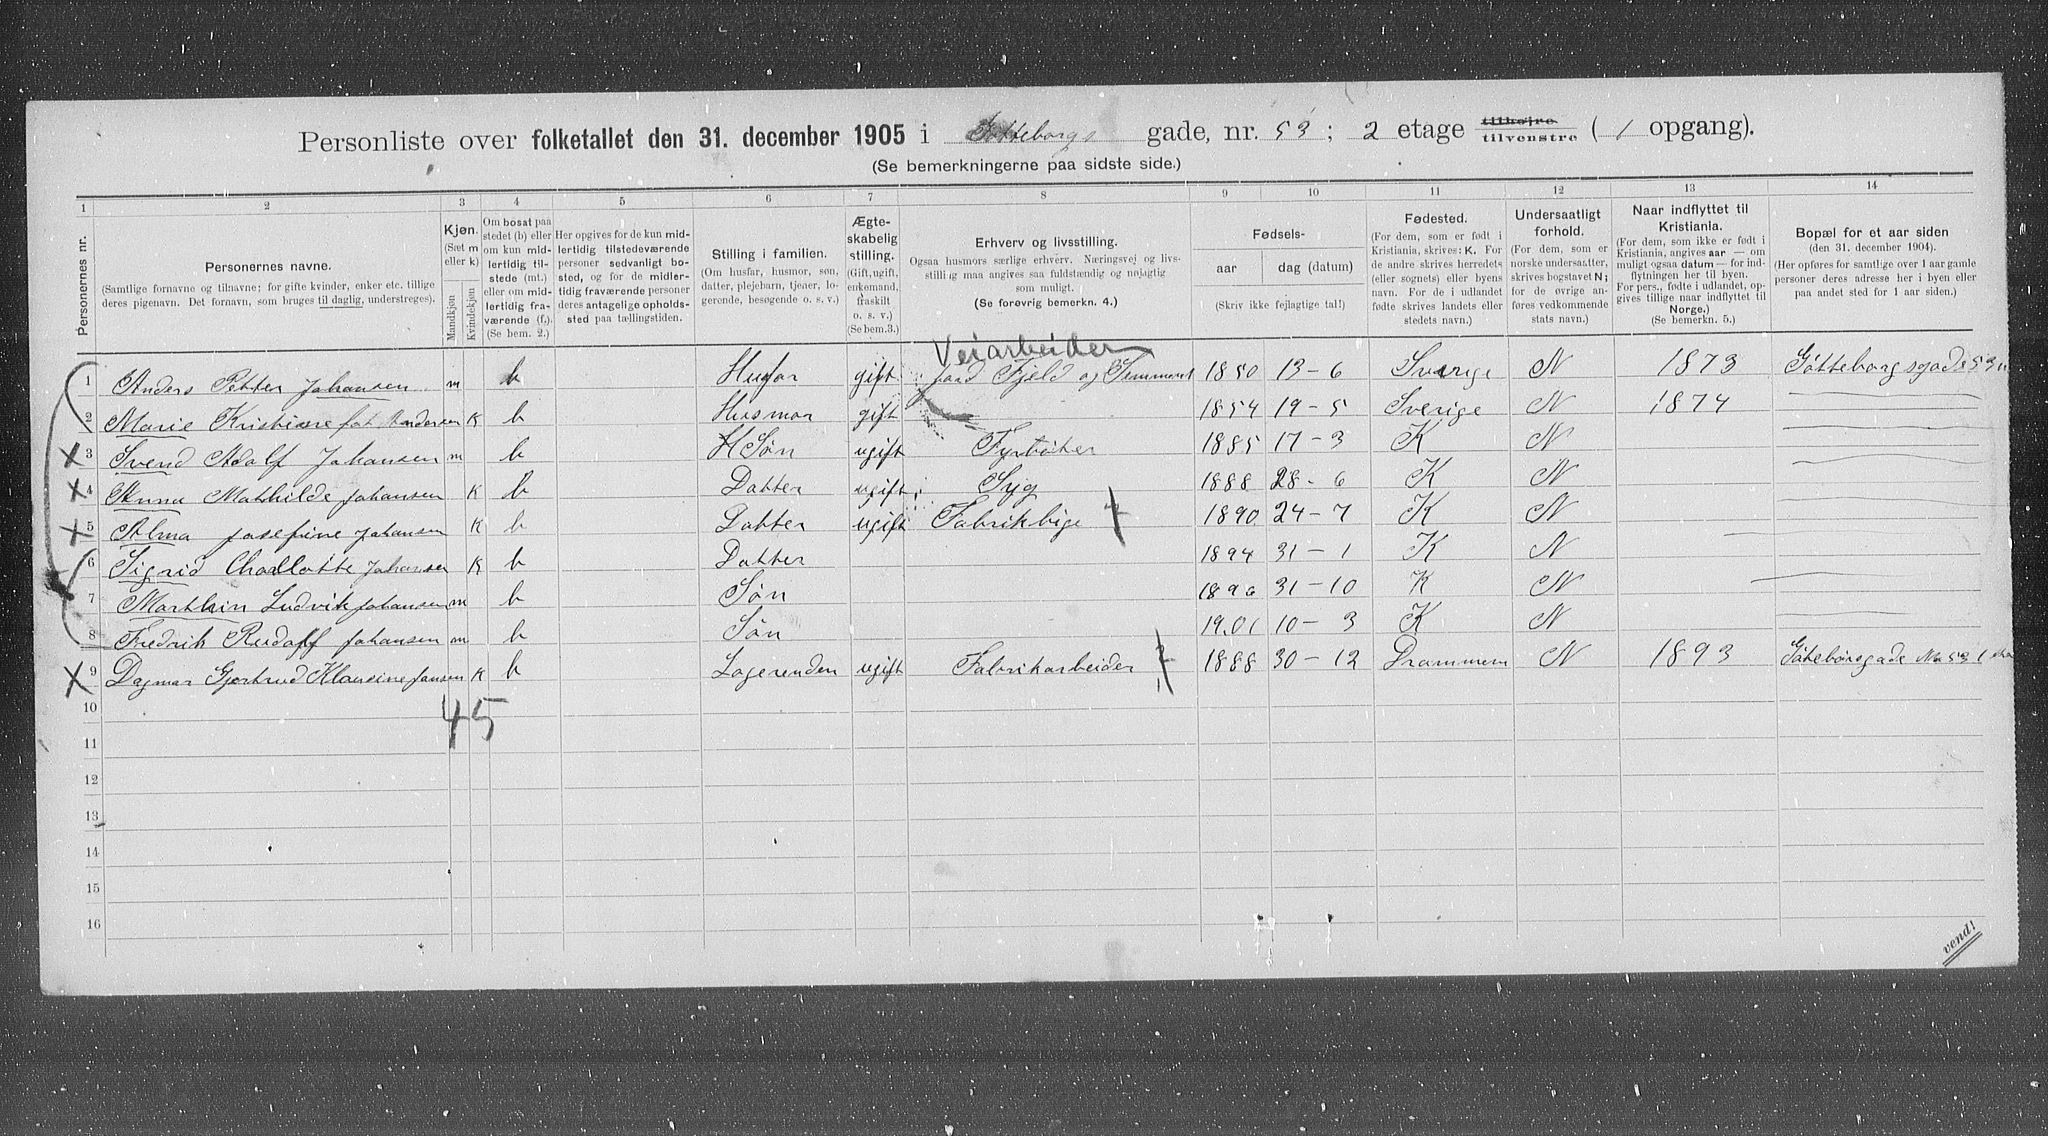 Personliste over folketallet den 31. december 1905 i Gøtteborgs gade, nr. 53; 2 etage tilhøjre tilvenstre (1 opgang).
(Se bemerkningerne paa sidste side.)
1 2 3 4 5 6 7 8 9 10 11 12 13 14
Personernes nr.
Personernes navne.
(Samtlige fornavne og tilnavne; for gifte kvinder, enker etc. tillige
deres pigenavn. Det fornavn, som bruges til daglig, understreges).
Kjøn.
(Sæt m
eller k)
Mandkjøn
Kvindekjøn
Om bosat paa
stedet (b) eller
om kun mid-
lertidig til-
stede (mt.)
eller om mid-
lertidig fra-
værende (f.).
(Se bem. 2.)
Her opgives for de kun mid-
lertidig tilstedeværende
personer sedvanlig bo-
sted, og for de midler-
tidig fraværende personer
deres antagelige opholds-
sted paa tællingstiden.
Stilling i familien.
(Om husfar, husmor, søn,
datter, plejebarn, tjener, lo-
gerende, besøgende o. s. v.)
Ægte-
skabelig
stilling.
(Gift, ugift,
enkemand,
fraskilt
o. s. v.)
(Se bem.3.)
Erhverv og livsstilling.
Ogsaa husmors særlige erhverv. Næringsvej og livs-
stilling maa angives saa fuldstændig og nøjagtig
som muligt.
(Se forøvrig bemerkn. 4.)
Fødsels-
aar dag (datum)
(Skriv ikke fejlagtige tal!)
Fødested.
(For dem, som er født i
Kristiania, skrives: K. For
de andre skrives herredets
(eller sognets) eller byens
navn. For de i udlandet
fødte skrives landets eller
stedets navn.)
Undersaatligt
forhold.
(For dem, som er
norske undersaatter,
skrives bogstavet N;
for de øvrige an-
føres vedkommende
stats navn.)
Naar indflyttet til
Kristiania.
(For dem, som ikke er født i
Kristiania, angives aar — om
muligt ogsaa datum — for ind-
flytningen her til byen.
For pers., fødte i udlandet, op-
gives tillige naar indflyttet til
Norge.)
(Se bemerkn. 5.)
Bopæl for et aar siden
(den 31. december 1904).
(Her opføres for samtlige over 1 aar gamle
personer deres adresse her i byen eller
paa andet sted for 1 aar siden.)
Veiarbeider
1 Anders Petter Johansen m b Husfar gift Jord Fjeld og Sement 1850 13-6 Sverige N 1873 Gøtteborgsgade 53
2 Marie Kristine føt Andersen K b Husmor gift 1854 19-5 Sverige N 1874
3 Svend Adolf Johansen m b Søn ugift Fyrbøter 1885 17-3 K N
4 Anna Mathilde Johansen K b Datter ugift Syg 1888 28-6 K N
5 Alma Josefine Johansen K b Datter ugift Fabrikpige 1890 24-7 K N
6 Sigrid Charlotte Johansen K b Datter 1894 31-1 K N
7 Marthin Ludvik Johansen m b Søn 1896 31-10 K N
8 Fredrik Rudolf Johansen m b Søn 1901 10-3 K N
9 Dagmar Gjertrud Klausine Jansen K b Logerenden ugift Fabrikarbeider 1888 30-12 Drammem N 1893 Gøteborsgade No 53
10
45
11
12
13
14
15
16
vend!